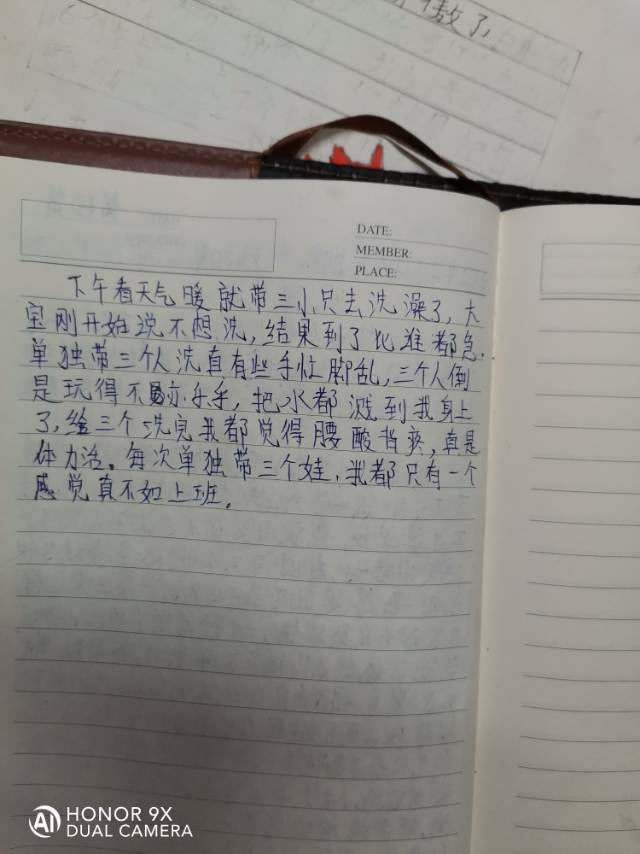 傲了
DATE:
MEMBER:
PLACE:
下午看天气暖就带三小只去洗澡了,大
宝刚开始说不想洗,结果到了比谁都急.
单独带三个人洗真有些手忙脚乱,三个人倒
是玩得不亦乐乎,把水都溅到我身上
了,给三个洗完我都觉得腰酸背疼,真是
体力活。每次单独带三个娃,我都只有一个
感觉真不如上班.
HONOR 9X
DUAL CAMERA